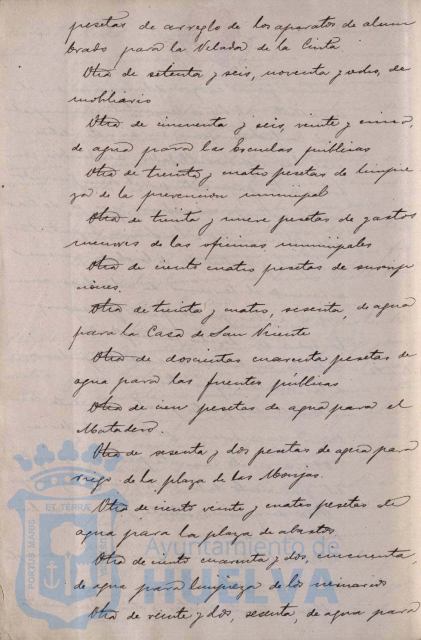 pesetas de arreglo de los aparatos de alum
brado para la Velada de la Cinta.
Otra de setenta y seis, noventa y ocho, de
mobliario
Otra de cincuenta y seis, veinte y cinco,
de agua para las Escuelas públicas
Otra de treinta y cuatro pesetas de limpie
za de la prevencion municipal
Otra de treinta y nueve pesetas de gastos
menores de las oficinas municipales
Otra de ciento cuatro pesetas de suscrip
ciones.
Otra de treinta y cuatro, sesenta, de agua
para la Casa de San Vicente
Otra de doscientas cuarenta pesetas de
agua para las fuentes públicas
Otra de cien pesetas de agua para el
Matadero.
Otra de sesenta y dos pesetas de agua para
riego de la plaza de las Monjas.
Otra de ciento veinte y cuatro pesetas de
agua para la plaza de abastos
Otra de ciento cuarenta y dos, cincuenta,
de agua para limpieza de los urinarios
Otra de veinte y dos, sesenta, de agua para
PORTUS MARIS ET TERRÆ
Ayuntamiento de
HUELVA